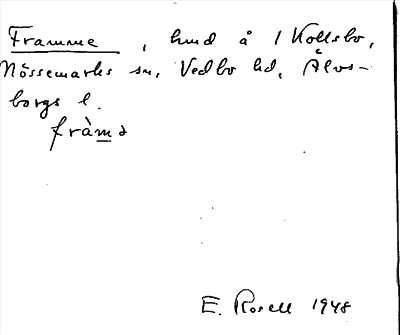 Framme, hmd å 1 Kollsbo,
Nössemarks sn, Vedbo hd, Älvs-
borgs l.
fràmə
E. Rosell 1948